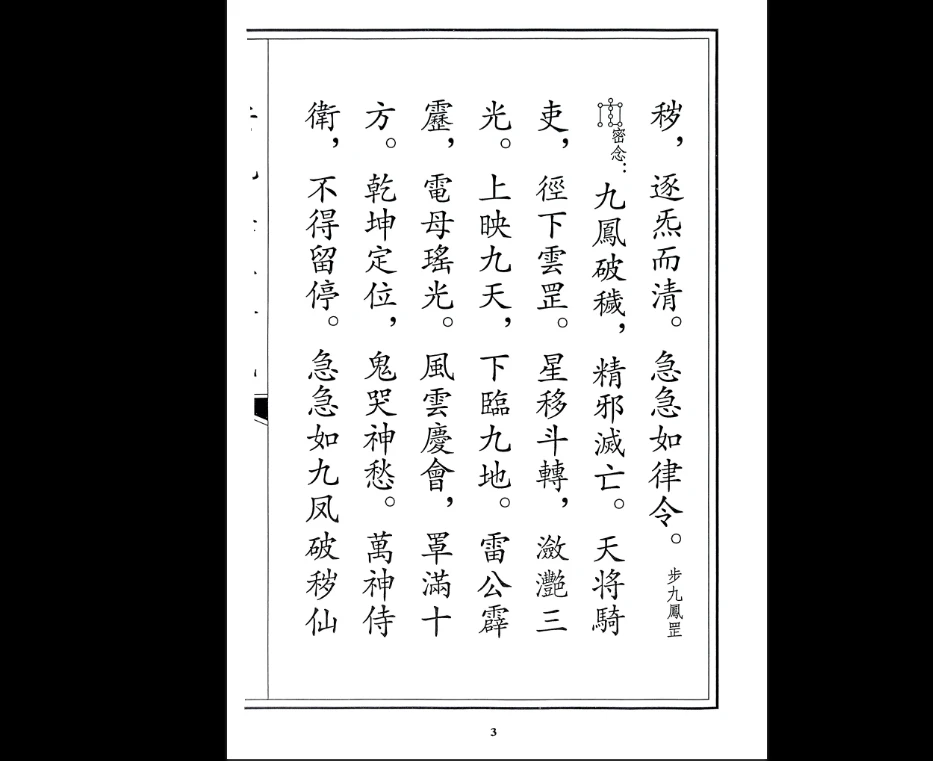 秽，逐炁而清。急急如律令。步九鳳罡
密念：九鳳破穢，精邪滅亡。天将騎
吏，徑下雲罡。星移斗轉，瀲灧三
光。上映九天，下臨九地。雷公霹
靂，電母瑤光。風雲慶會，罩滿十
方。乾坤定位，鬼哭神愁。萬神侍
衛，不得留停。急急如九凤破秽仙
3